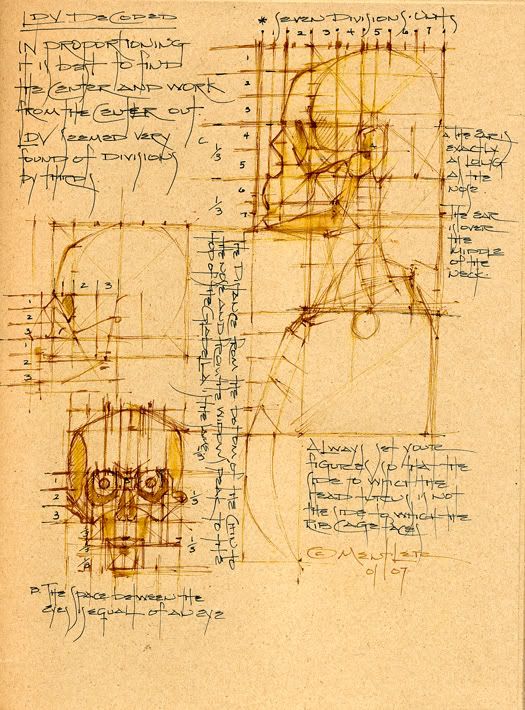 LDV DECODED
IN PROPORTIONING
IT IS BEST TO FIND
THE CENTER AND WORK
FROM THE CENTER OUT
LDV SEEMED VERY
FOUND OF DIVISIONS
BY THIRDS
* SEVEN DIVISIONS • UNITS
1 2 3 4 5 6 7
1
2
3
4
5
6
7
C
1/3
1/3
A THE EAR IS
EXACTLY
AS LONG
AS THE
NOSE
THE EAR
IS OVER
THE
MIDDLE
OF THE
NECK
1 2 3
1
2
3
1
2
3
THE DISTANCE FROM THE BOTTOM OF THE CHIN TO
THE NOSE AND FROM THE WIDOWS PEAK TO THE
TOP OF THE IS THE SAME
1
2
3
1/3
1/3
B. THE SPACE BETWEEN THE
EYES IS EQUAL OF AN EYE
ALWAYS SET YOUR
FIGURES SO THAT THE
SIDE TO WHICH THE
HEAD TURNS IS NOT
THE SIDE TO WHICH THE
RIB CAGE FACES
© MENTLER
07